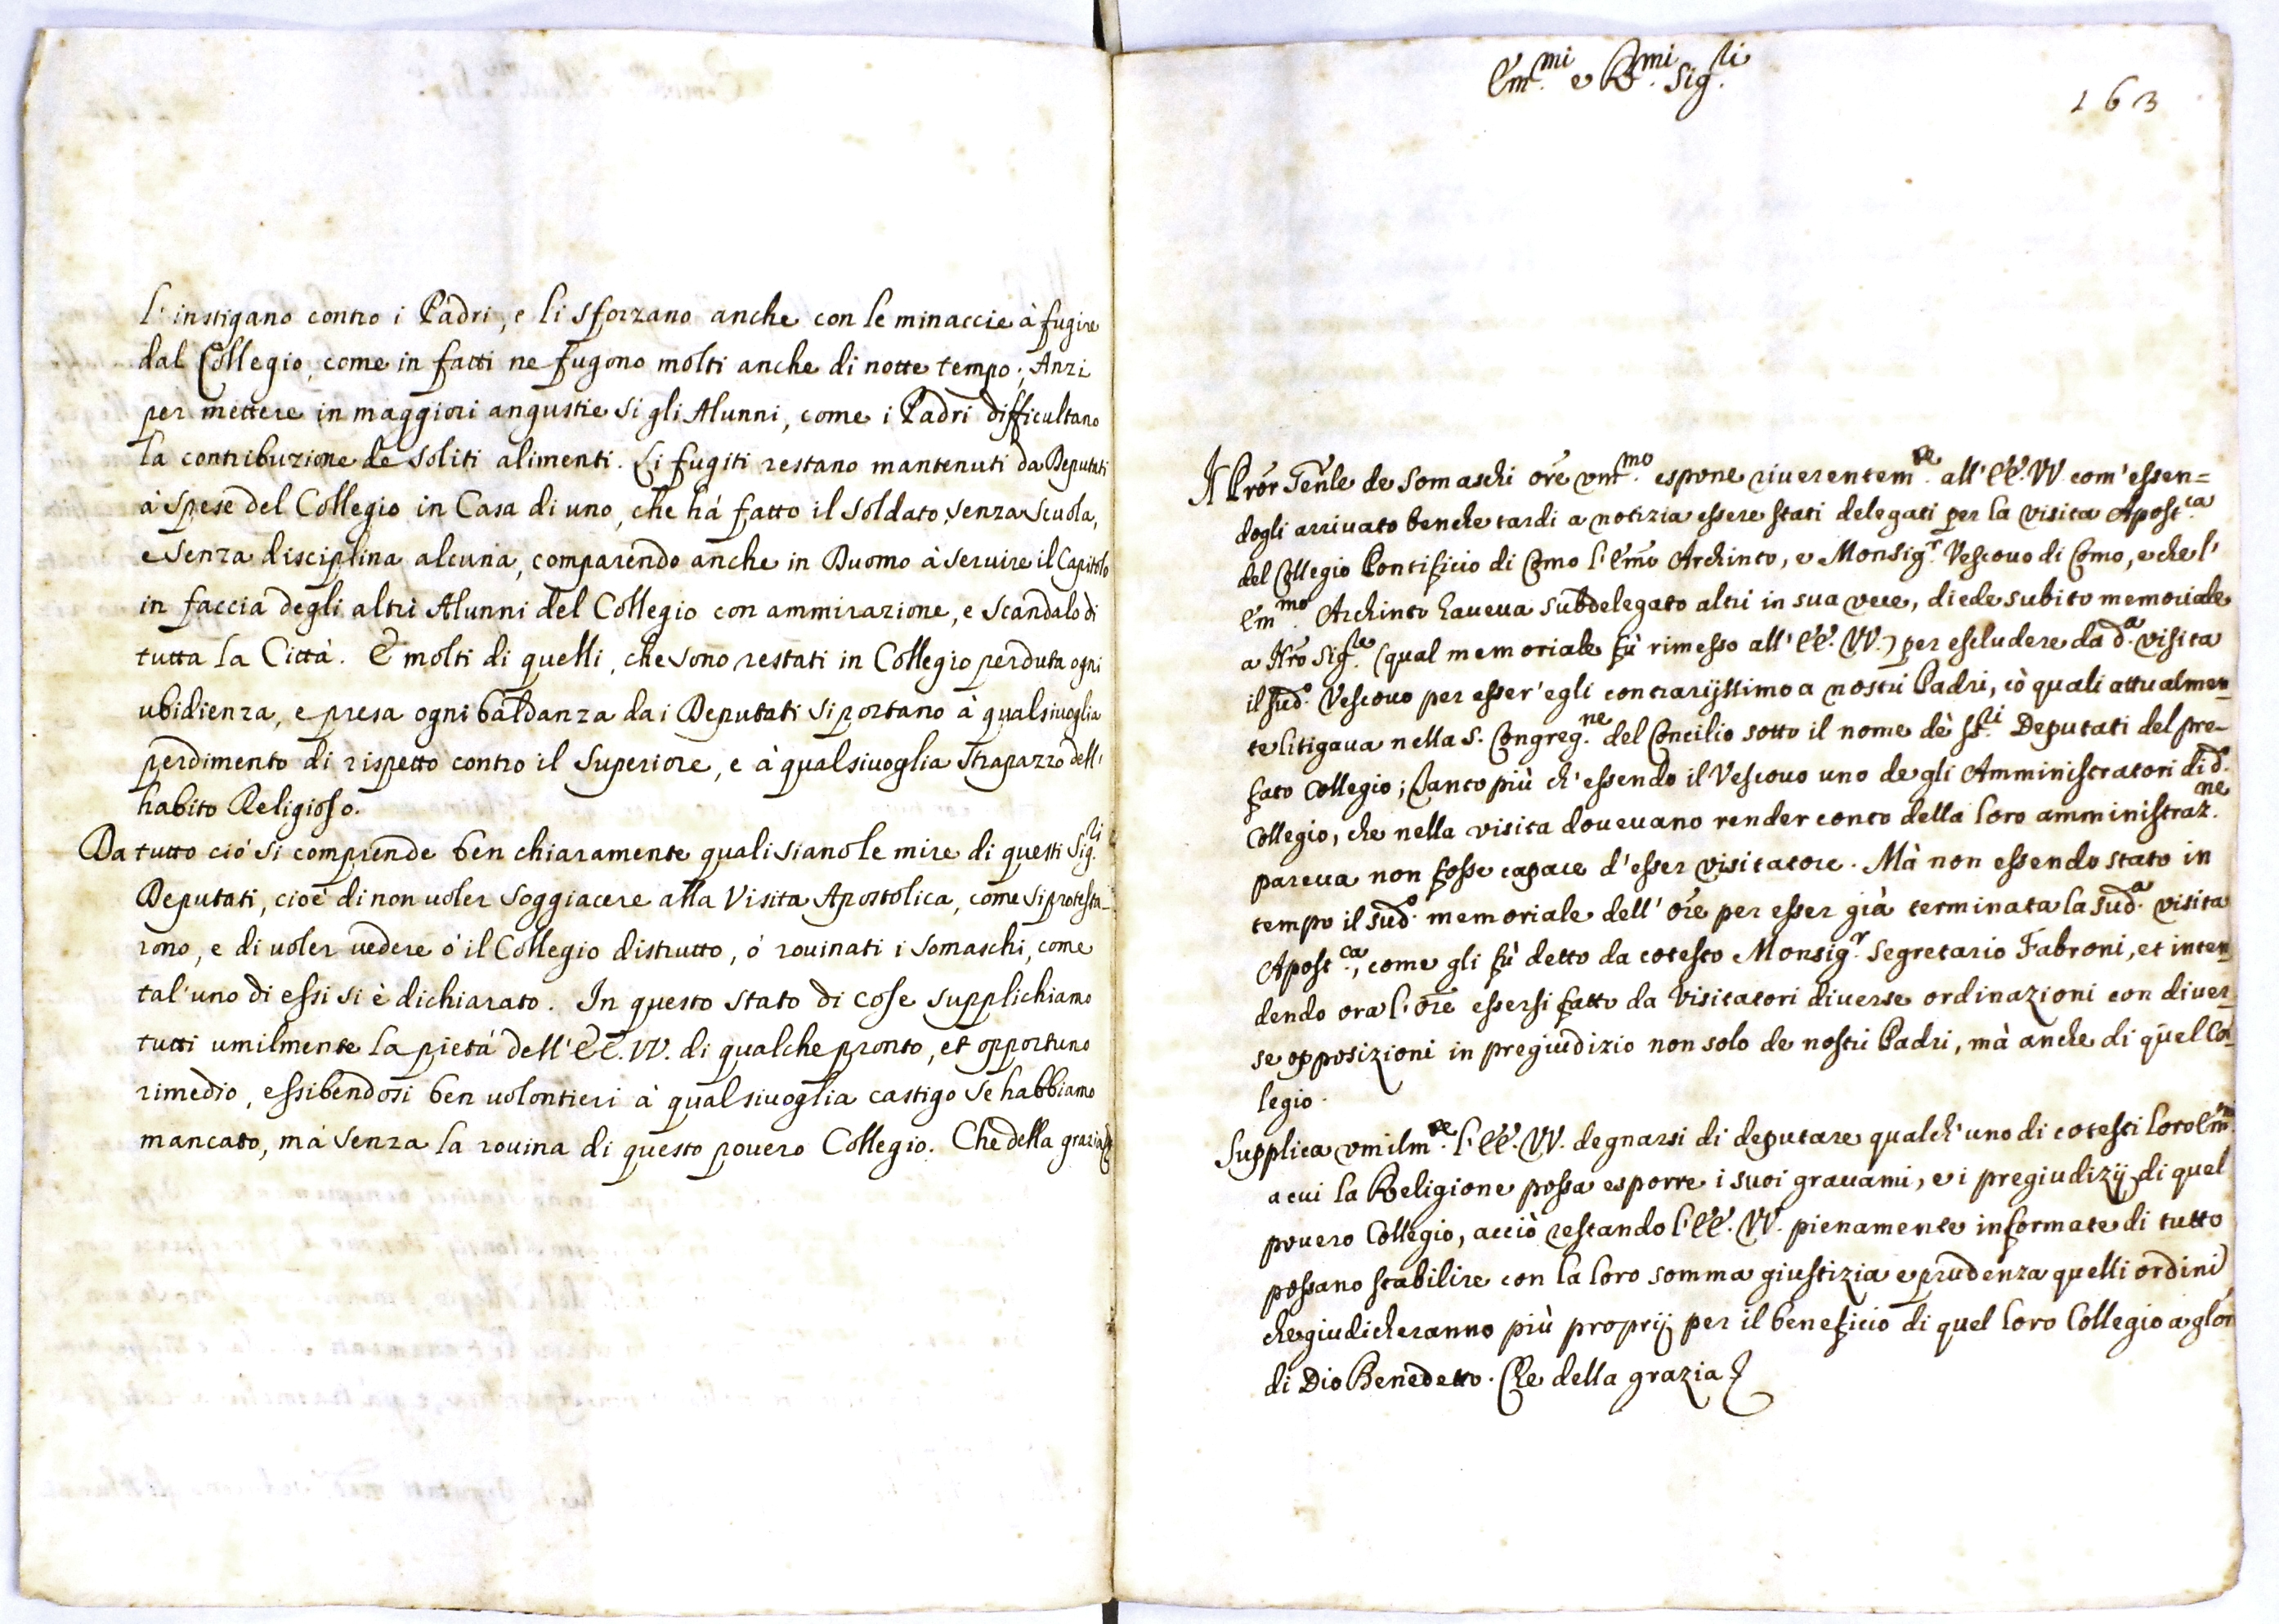 l'instigano contro i Padri, e li sforzano anche con le minaccie à fugire
dal Collegio, come in fatti ne fugono molti anche di notte tempo; Anzi
per mettere in maggiori angustie si gli Alunni, come i Padri difficultano
la contribuzione de soliti alimenti. Li fugiti restano mantenuti da Deputati
à spese del Collegio in Casa di uno, che hà fatto il soldato, senza scuola,
e senza disciplina alcuna, comparendo anche in Duomo à servire il Capitolo
in faccia degli altri Alunni del Collegio con ammirazione, e scandalo di
tutta la Città. E molti di quelli, che sono restati in Collegio perduta ogni
ubidienza, e presa ogni baldanza da i Deputati si portano à qualsiuoglia
perdimento di rispetto contro il Superiore, e à qualsiuoglia strapazzo dell'
habito Religioso.
Da tutto ciò si comprende ben chiaramente quali siano le mire di questi Sig.ri
Deputati, cioè di non uoler soggiacere alla Visita Apostolica, come si protesta-
rono, e di uoler uedere ò il Collegio distrutto, ò rouinati i Somaschi, come
tal'uno di essi si è dichiarato. In questo stato di cose supplichiamo
tutti umilmente la pietà dell'EE. VV. di qualche pronto, et opportuno
rimedio, essibendosi ben uolontieri à qualsiuoglia castigo se habbiamo
mancato, mà senza la rouina di questo pouero Collegio. Che della grazia
Em.mi e R.mi Sig.ri
163
Il Pror Genle de Somaschi ore vm.mo espone riuerentem.te all'EE. VV. com'essen=
dogli arriuato benche tardi a notizia essere stati delegati per la visita Apost.ca
del Collegio Pontificio di Como l'Emo Archinto, e Monsig.r Vescouo di Como, e che l'
Em.mo Archinto haueua subdelegato altri in sua vece, diede subito memoriale
a Nro Sig.re (qual memoriale fù rimesso all'EE. VV.) per escludere da d.a visita
il sud.o Vescouo per esser'egli contrarijssimo a nostri Padri, cò quali attualmen-
te litigaua nella S. Congreg.ne del Concilio sotto il nome dè SS.ri Deputati del pre-
fato Collegio; tanto più ch'essendo il Vescouo uno degli Amministratori di d.o
Collegio, che nella visita doueuano render conto della loro amministraz.ne
pareua non fosse capace d'esser visitatore. Mà non essendo stato in
tempo il sud.o memoriale dell'ore per esser già terminata la sud.a visita
Apost.ca, come gli fù detto da cotesto Monsig.r Segretario Fabroni, et inten-
dendo ora l'ore essersi fatto da Visitatori diuerse ordinazioni con diuer-
se opposizioni in pregiudizio non solo de nostri Padri, mà anche di quel Col-
legio.
Supplica vmilm.te l'EE. VV. degnarsi di deputare qualch'uno di cotesti loro Em.mi
a cui la Religione possa esporre i suoi grauami, e i pregiudizij di quel
pouero Collegio, acciò restando l'EE. VV. pienamente informate di tutto
possano stabilire con la loro somma giustizia e prudenza quelli ordini
che giudicheranno più proprij per il beneficio di quel loro Collegio a glor
di Dio Benedetto. Che della grazia